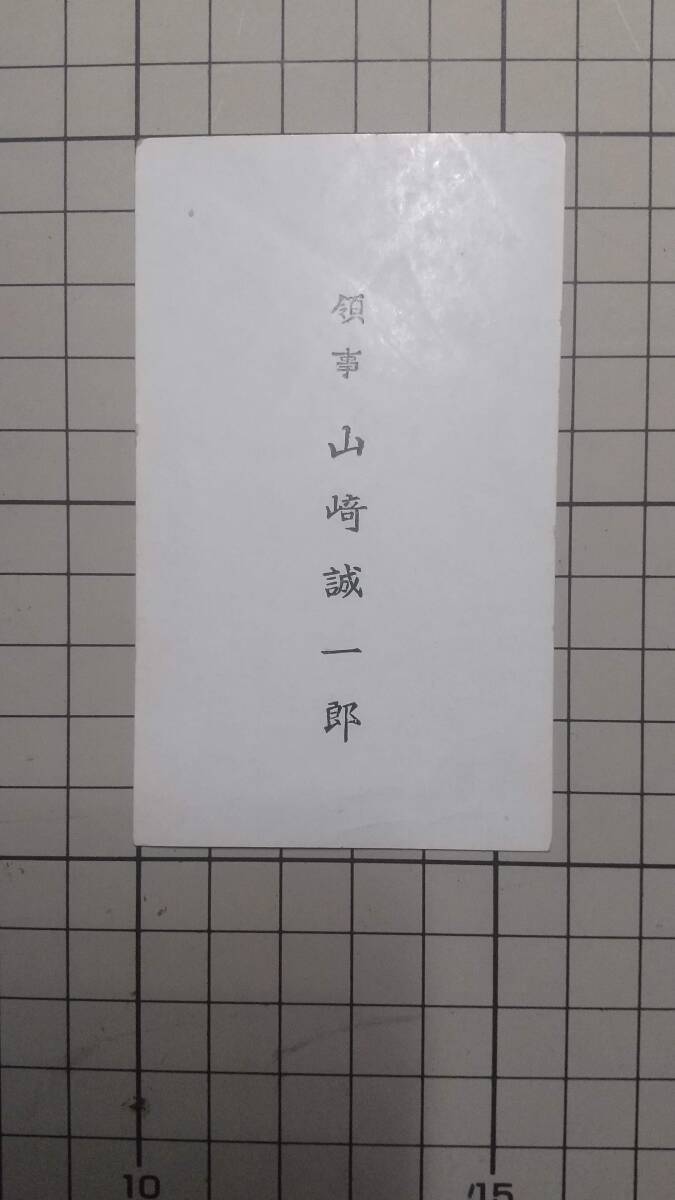 領事 山﨑誠一郎
10
15